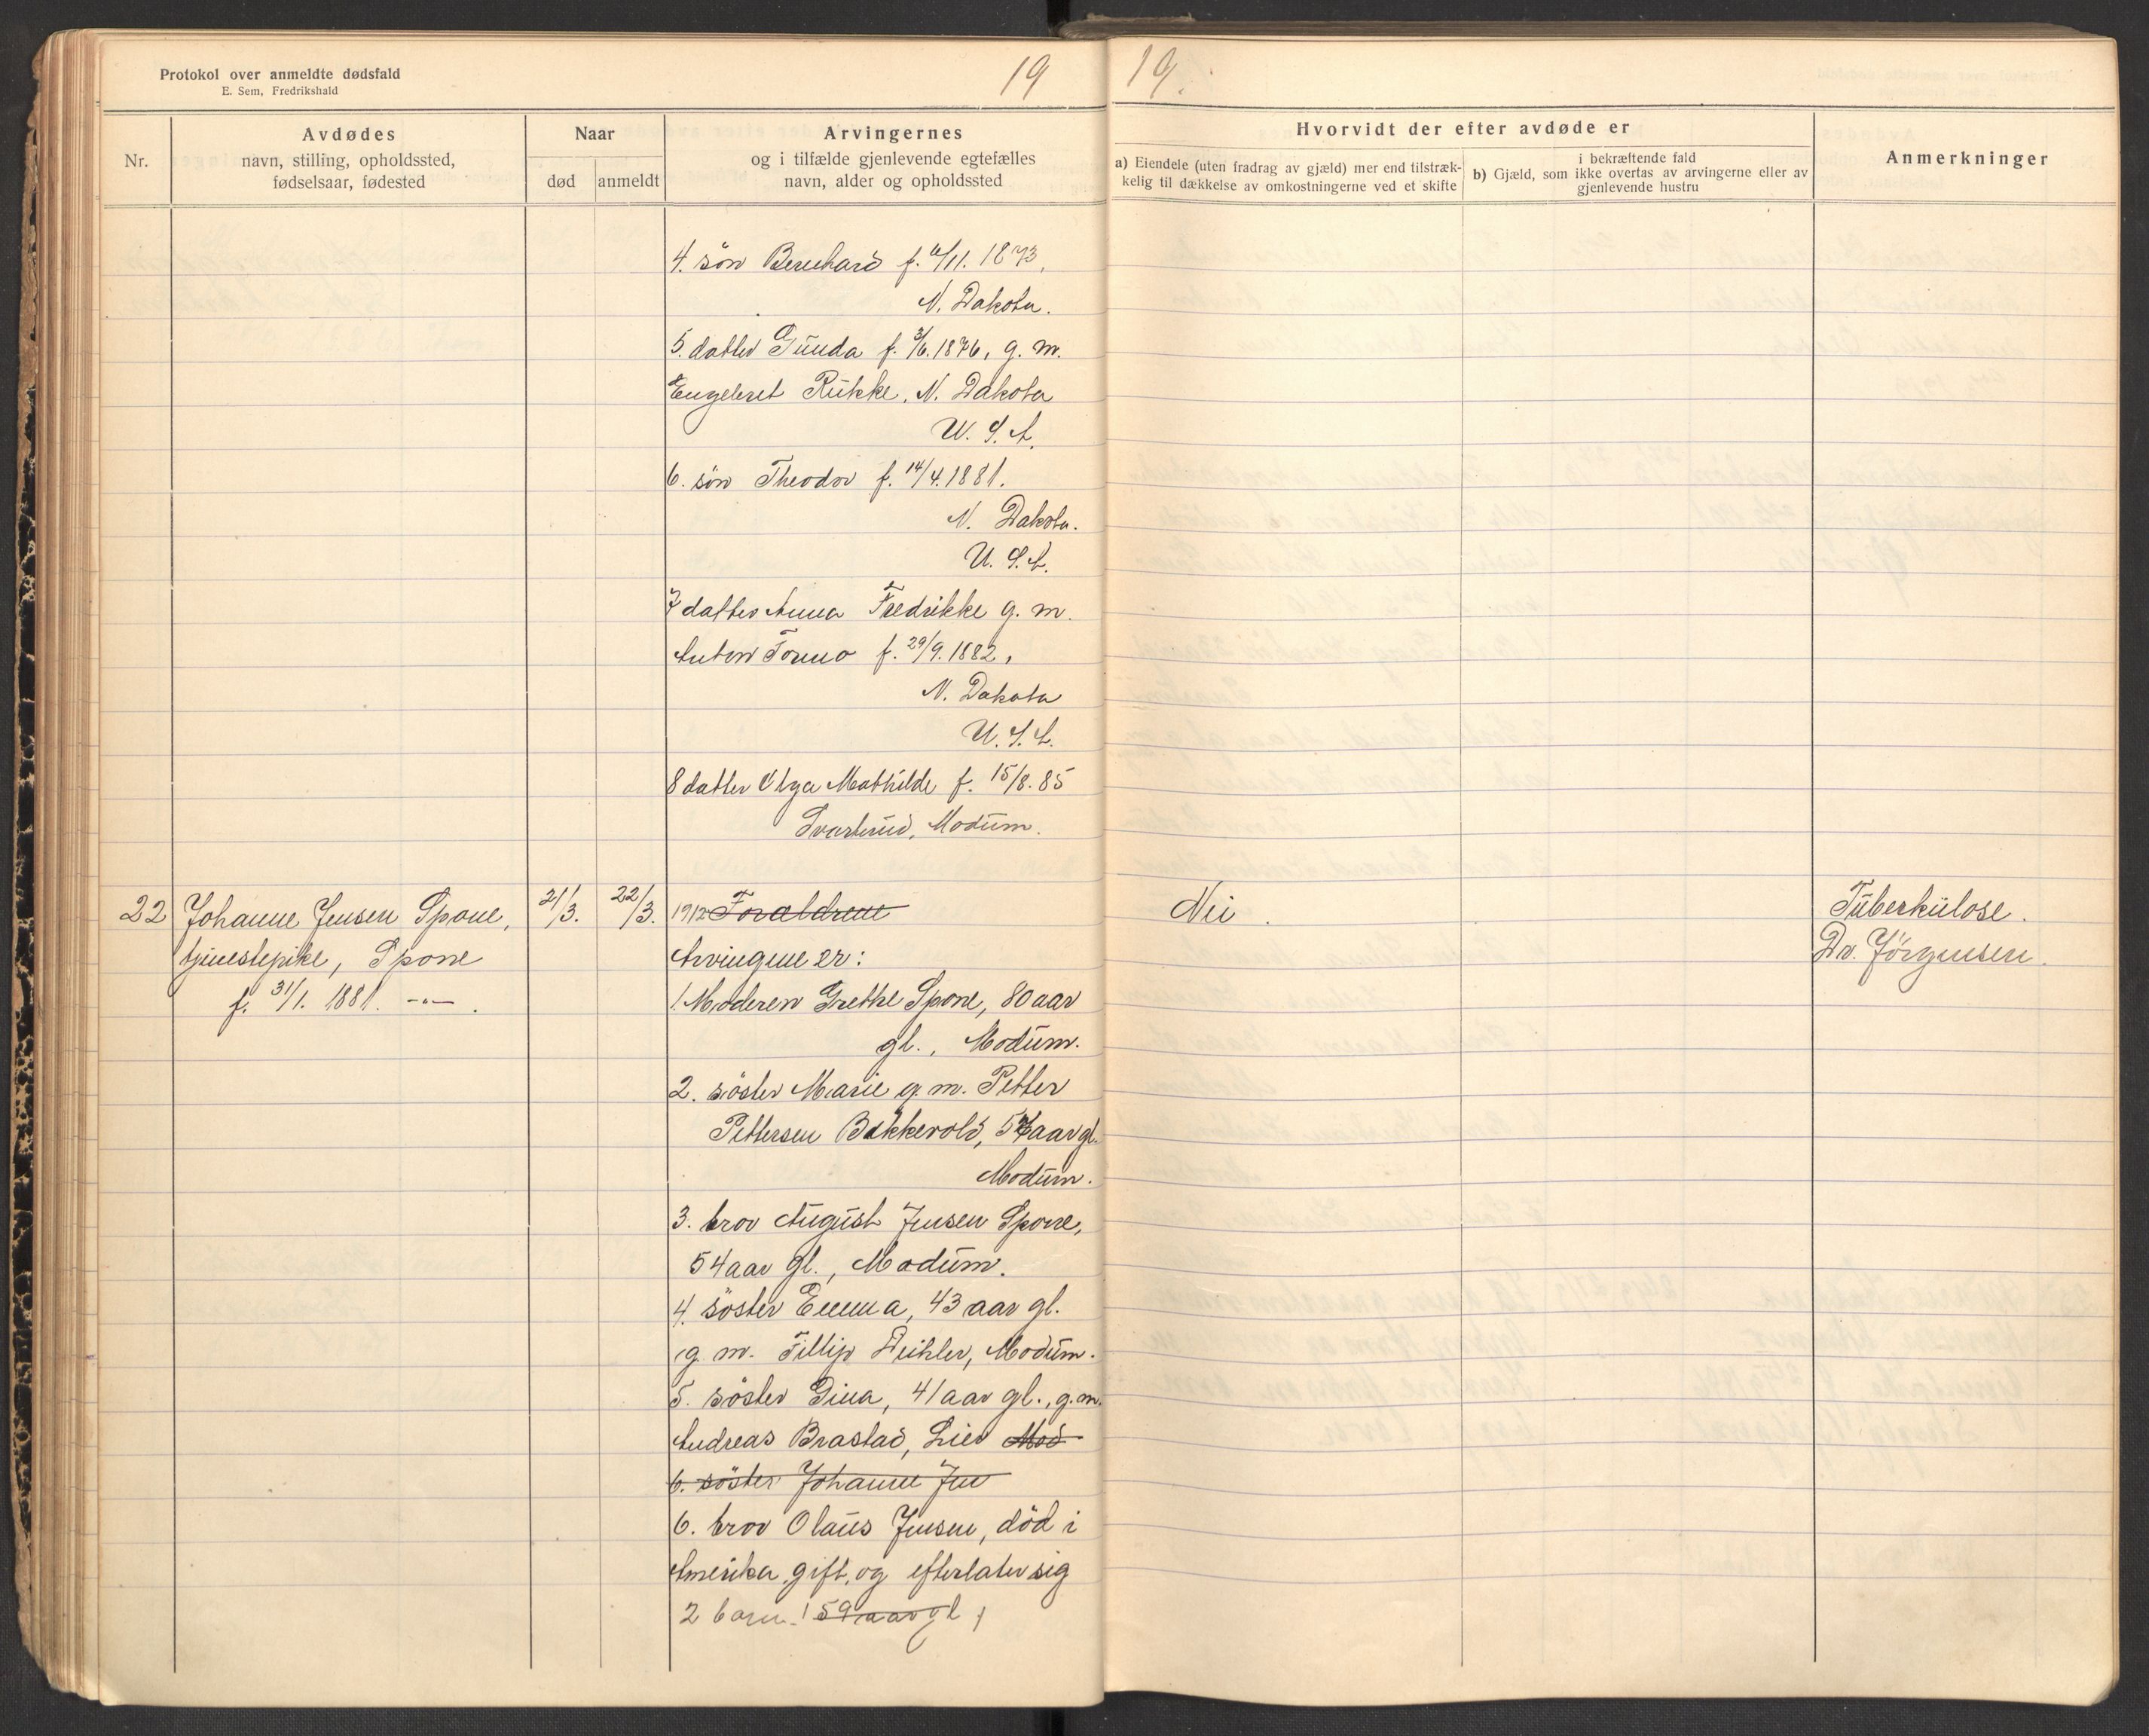 Protokol over anmeldte dødsfald
E. Sem, Fredrikshald
19
19.
Nr.
Avdødes
navn, stilling, opholdssted,
fødselsaar, fødested
Naar
død
anmeldt
Arvingernes
og i tilfælde gjenlevende egtefælles
navn, alder og opholdssted
Hvorvidt der efter avdøde er
a) Eiendele (uten fradrag av gjæld) mer end tilstræk-
kelig til dækkelse av omkostningerne ved et skifte
i bekræftende fald
b) Gjæld, som ikke overtas av arvingerne eller av
gjenlevende hustru
Anmerkninger
4. sön Bernhard f. 6/11. 1873,
N. Dakota.
5. datter Gunda f. 3/6. 1876, g. m.
Engebret Rukke, N. Dakota
U. S. A.
6. sön Theodor f. 14/4. 1881.
N. Dakota.
U. S. A.
7 datter Anna Fredrikke g. m.
Anton Formo f. 29/9. 1882,
N. Dakota
U. S. A.
8 datter Olga Mathilde f. 15/8. 85
Svarterud, Modum.
22 Johanne Jensen Spone, 21/3. 22/3. 1912 Forældrene Nei. Tuberkulose.
tjenestepike, Spone Arvingene er: Dr. Jörgensen.
f. 31/1. 1881. -"- . 1. Moderen Grethe Spone, 80 aar
gl., Modum.
2. söster Marie g. m. Petter
Pettersen Bakkevold, aar gl.
Modum.
3. bror August Jensen Spone,
54 aar gl., Modum.
4. söster Emma, 43 aar gl.
g. m. Fillip Deihler, Modum.
5. söster Dina, 41 aar gl., g. m.
Andreas Brastad, Lier Mod
6. söster Johanne Jen
6. bror Olaus Jensen, död i
Amerika, gift, og efterlater sig
2 barn. 59 aar gl